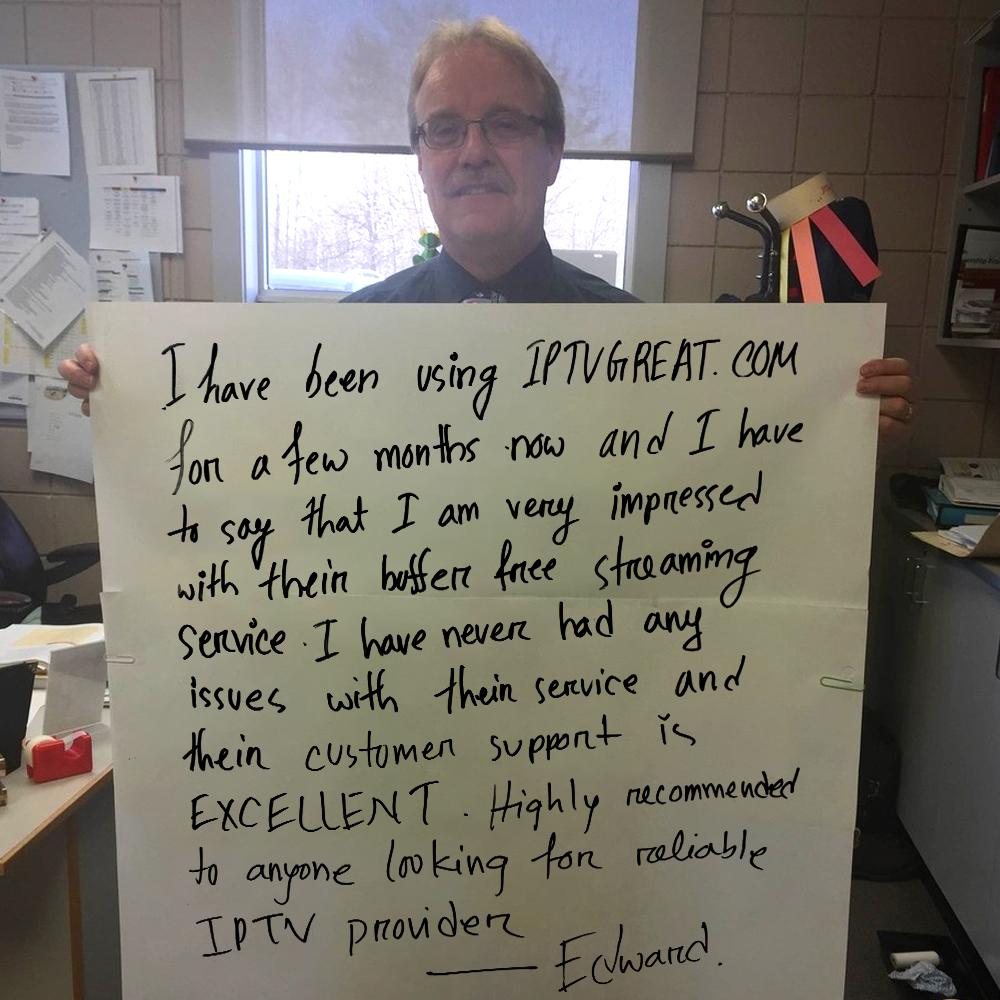 I have been using IPTVGREAT.COM
for a few months now and I have
to say that I am very impressed
with their buffer free streaming
service. I have never had any
issues with their service and
their customer support is
EXCELLENT. Highly recommended
to anyone looking for reliable
IPTV provider
— Edward.